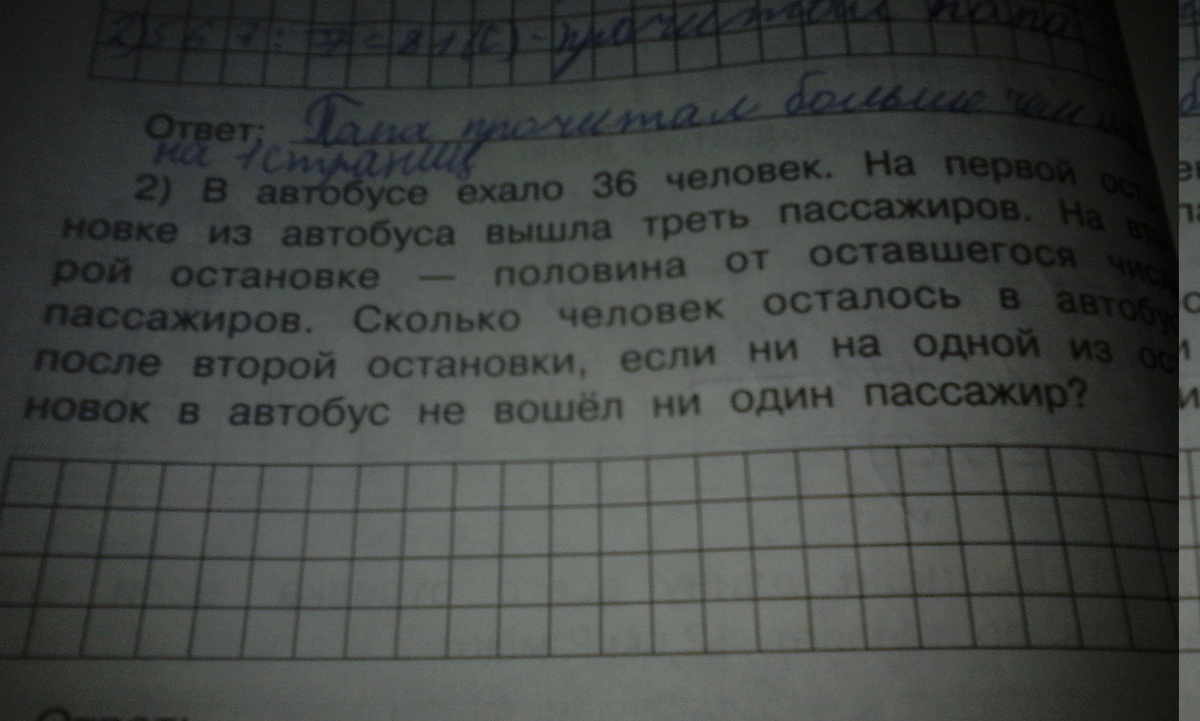 2) 567 : 7 = 81 (с) - прочитал папа
Ответ: Папа прочитал больше чем
на 1 страниц
2) В автобусе ехало 36 человек. На первой
новке из автобуса вышла треть пассажиров. На
рой остановке — половина от оставшегося
пассажиров. Сколько человек осталось в
после второй остановки, если ни на одной из
новок в автобус не вошёл ни один пассажир?